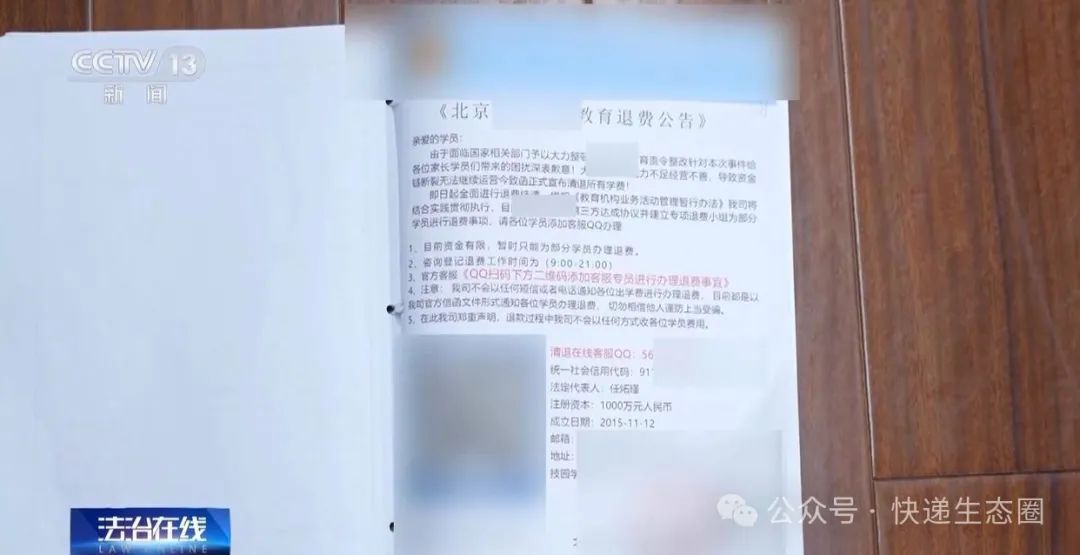 CCTV 13
新闻
《北京 教育退费公告》
亲爱的学员：
由于面临国家相关部门予以大力整 育责令整改针对本次事件给
各位家长学员们带来的困扰深表歉意！ 力不足经营不善，导致资金
链断裂无法继续运营今致函正式宣布清退所有学费！
即日起全面进行退费 《教育机构业务活动管理暂行办法》我司将
结合实践贯彻执行，目 第三方达成协议并建立专项退费小组为部分
学员进行退费事项，请各位学员添加客服QQ办理
1、目前资金有限，暂时只能为部分学员办理退费。
2、咨询登记退费工作时间为（9:00-21:00）
3、官方客服《QQ扫码下方二维码添加客服专员进行办理退费事宜》
4、注意：我司不会以任何短信或者电话通知各位出学费进行办理退费，目前都是以
我司官方信函文件形式通知各位学员办理退费，切勿相信他人谨防上当受骗。
5、在此我司郑重声明，退款过程中我司不会以任何方式收各位学员费用。
清退在线客服QQ：56
统一社会信用代码：911
法定代表人：任
注册资本：1000万元人民币
成立日期：2015-11-12
邮箱：
地址：
技园
法治在线
LAW ONLINE
公众号·快递生态圈